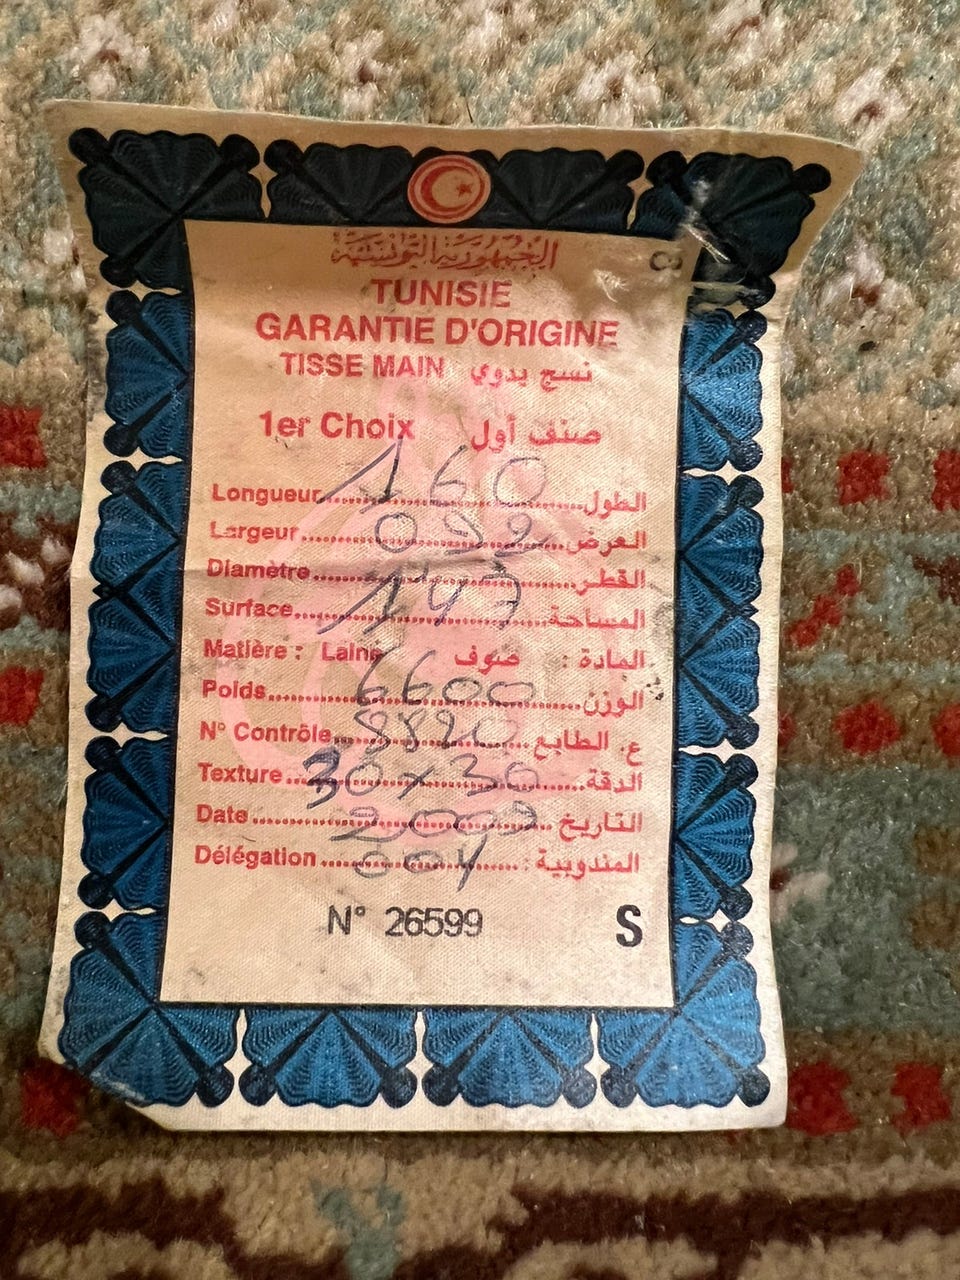 الجمهورية التونسية
TUNISIE
GARANTIE D'ORIGINE
TISSE MAIN نسج يدوي
1er Choix صنف أول
Longueur 160 الطول
Largeur 092 العرض
Diamètre القطر
Surface 147 المساحة
Matière : Laine صوف المادة :
Poids 6600 الوزن
N° Contrôle 8820 ع. الطابع
Texture 30x30 الدقة
Date 2009 التاريخ
Délégation 004 المندوبية :
N° 26599 S